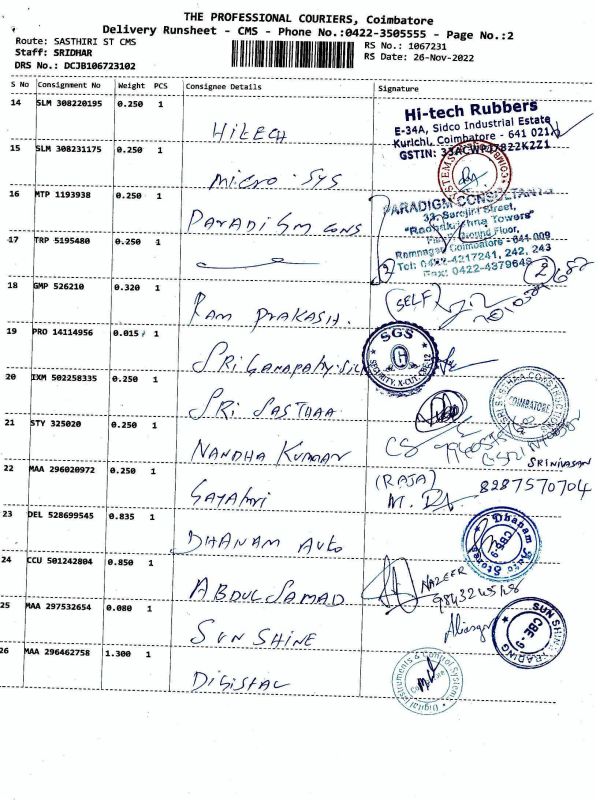 THE PROFESSIONAL COURIERS, Coimbatore
Delivery Runsheet - CMS - Phone No.:0422-3505555 - Page No.:2
Route: SASTHIRI ST CMS
Staff: SRIDHAR
DRS No.: DCJB106723102
RS No.: 1067231
RS Date: 26-Nov-2022
S No Consignment No Weight PCS Consignee Details Signature
14 SLM 308220195 0.250 1 HITECH
Hi-tech Rubbers
E-34A, Sidco Industrial Estate
Kurichi, Coimbatore - 641 021
GSTIN:
15 SLM 308231175 0.250 1 MICRO SYS
16 MTP 1193938 0.250 1 PARADIGM CONS
PARADIGM CONSULTANTS
33, Sarojini Street,
"Radhakrishna Towers"
Ground Floor,
Ramnagar, Coimbatore - 641 009
Tel: 0422-4217241, 242, 243
Fax: 0422-4379648
17 TRP 5195480 0.250 1
18 GMP 526210 0.320 1 RAM PRAKASH.
(SELF)
19 PRO 14114956 0.015 1 SRI GANAPATHY SILK
SGS
G
20 IXM 502258335 0.250 1 SRI SASTHAA
SRI SASTHAA CONSTRUCTION
COIMBATORE
21 STY 325020 0.250 1 NANDHA KUMAR
CS
SRINIVASAN
22 MAA 296020972 0.250 1 GAYATHRI
(RAJA)
8287570704
23 DEL 528699545 0.835 1 DHANAM AUTO
Dhanam Auto Stores
CBE-9
24 CCU 501242804 0.850 1 ABDUL SAMAD
NAZEER
25 MAA 297532654 0.080 1 SUN SHINE
SUN SHINE TRADING
CBE-9
26 MAA 296462758 1.300 1 DIGISTAL
Digital Instruments & Control Systems